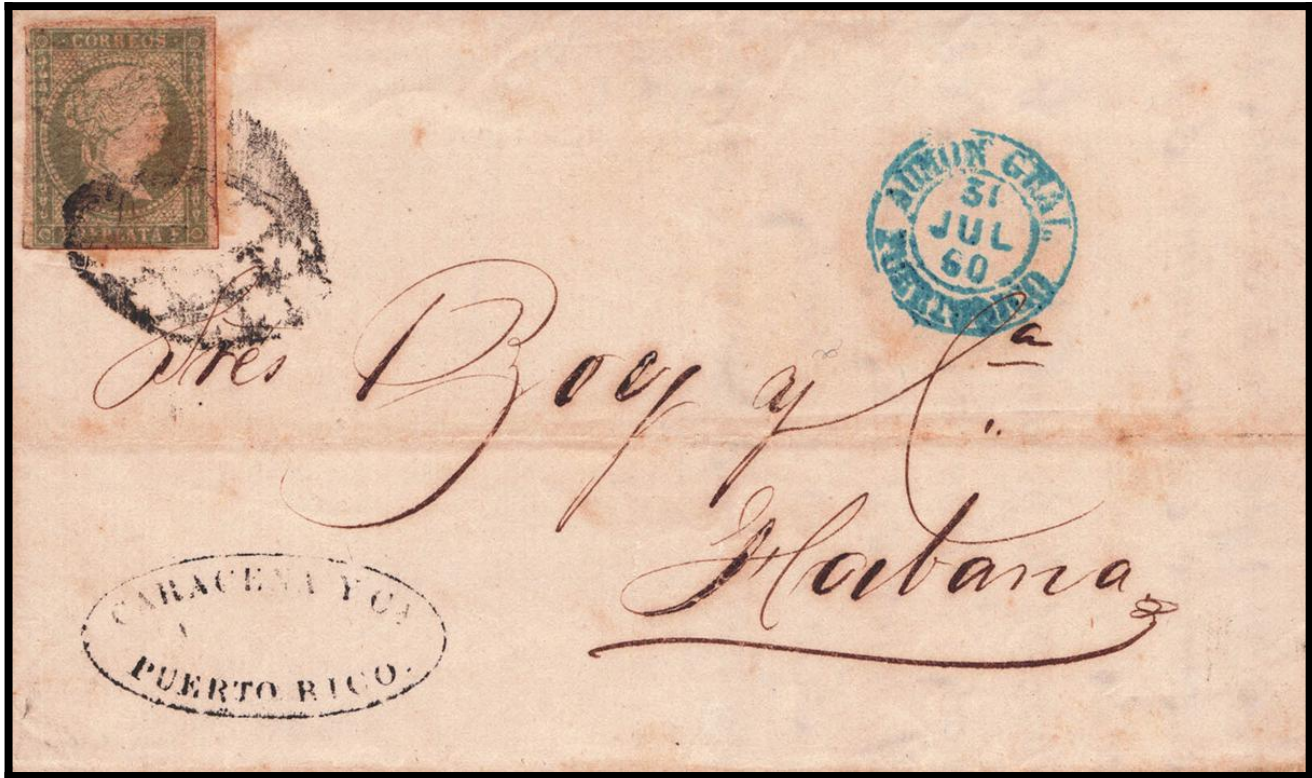 CORREOS
PLATA F
ADMON GRAL.
31
JUL
60
Sres Boy y Cª
Habana
CARACENA Y Cª
PUERTO RICO.